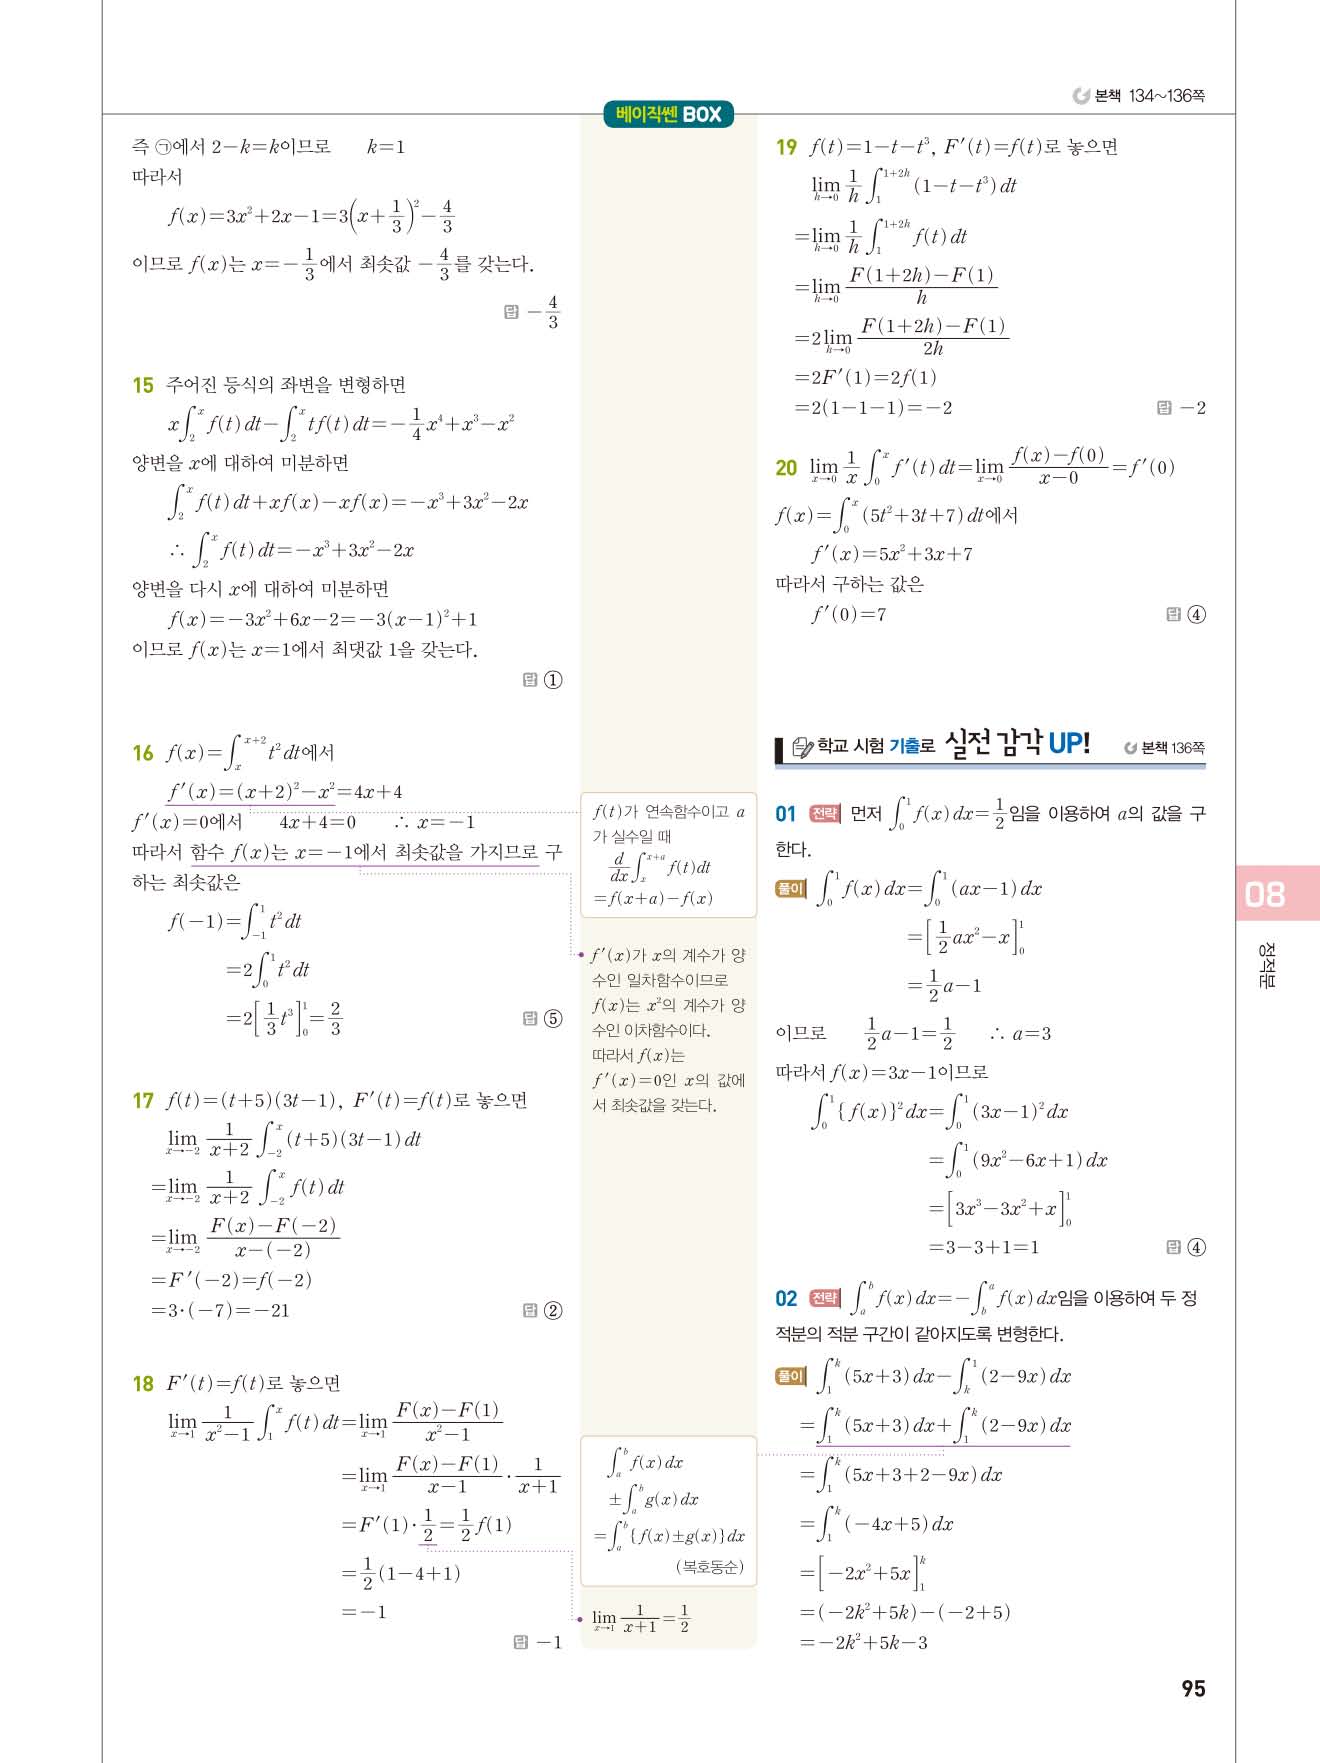 본책 134~136쪽
베이직쎈 BOX
즉 ㉠에서 2-k=k이므로  k=1
따라서
f(x)=3x²+2x-1=3(x+1/3)²-4/3
이므로 f(x)는 x=-1/3에서 최솟값 -4/3를 갖는다.
답 -4/3
15 주어진 등식의 좌변을 변형하면
x∫₂ˣ f(t)dt-∫₂ˣ tf(t)dt=-1/4x⁴+x³-x²
양변을 x에 대하여 미분하면
∫₂ˣ f(t)dt+xf(x)-xf(x)=-x³+3x²-2x
∴ ∫₂ˣ f(t)dt=-x³+3x²-2x
양변을 다시 x에 대하여 미분하면
f(x)=-3x²+6x-2=-3(x-1)²+1
이므로 f(x)는 x=1에서 최댓값 1을 갖는다.
답 ①
16 f(x)=∫ₓˣ⁺² t²dt에서
f′(x)=(x+2)²-x²=4x+4
f′(x)=0에서  4x+4=0  ∴ x=-1
따라서 함수 f(x)는 x=-1에서 최솟값을 가지므로 구
하는 최솟값은
f(-1)=∫₋₁¹ t²dt
=2∫₀¹ t²dt
=2[1/3t³]₀¹=2/3
답 ⑤
17 f(t)=(t+5)(3t-1), F′(t)=f(t)로 놓으면
lim x→-2 1/(x+2) ∫₋₂ˣ (t+5)(3t-1)dt
=lim x→-2 1/(x+2) ∫₋₂ˣ f(t)dt
=lim x→-2 (F(x)-F(-2))/(x-(-2))
=F′(-2)=f(-2)
=3·(-7)=-21
답 ②
18 F′(t)=f(t)로 놓으면
lim x→1 1/(x²-1) ∫₁ˣ f(t)dt=lim x→1 (F(x)-F(1))/(x²-1)
=lim x→1 (F(x)-F(1))/(x-1)·1/(x+1)
=F′(1)·1/2=1/2f(1)
=1/2(1-4+1)
=-1
답 -1
f(t)가 연속함수이고 a
가 실수일 때
d/dx ∫ₓˣ⁺ᵃ f(t)dt
=f(x+a)-f(x)
f′(x)가 x의 계수가 양
수인 일차함수이므로
f(x)는 x²의 계수가 양
수인 이차함수이다.
따라서 f(x)는
f′(x)=0인 x의 값에
서 최솟값을 갖는다.
∫ₐᵇ f(x)dx
±∫ₐᵇ g(x)dx
=∫ₐᵇ {f(x)±g(x)}dx
(복호동순)
lim x→1 1/(x+1)=1/2
19 f(t)=1-t-t³, F′(t)=f(t)로 놓으면
lim h→0 1/h ∫₁¹⁺²ʰ (1-t-t³)dt
=lim h→0 1/h ∫₁¹⁺²ʰ f(t)dt
=lim h→0 (F(1+2h)-F(1))/h
=2lim h→0 (F(1+2h)-F(1))/2h
=2F′(1)=2f(1)
=2(1-1-1)=-2
답 -2
20 lim x→0 1/x ∫₀ˣ f′(t)dt=lim x→0 (f(x)-f(0))/(x-0)=f′(0)
f(x)=∫₀ˣ (5t²+3t+7)dt에서
f′(x)=5x²+3x+7
따라서 구하는 값은
f′(0)=7
답 ④
학교 시험 기출로 실전 감각 UP!
본책 136쪽
01 전략 먼저 ∫₀¹ f(x)dx=1/2임을 이용하여 a의 값을 구
한다.
풀이 ∫₀¹ f(x)dx=∫₀¹ (ax-1)dx
=[1/2ax²-x]₀¹
=1/2a-1
이므로  1/2a-1=1/2  ∴ a=3
따라서 f(x)=3x-1이므로
∫₀¹ {f(x)}²dx=∫₀¹ (3x-1)²dx
=∫₀¹ (9x²-6x+1)dx
=[3x³-3x²+x]₀¹
=3-3+1=1
답 ④
02 전략 ∫ₐᵇ f(x)dx=-∫_b^a f(x)dx임을 이용하여 두 정
적분의 적분 구간이 같아지도록 변형한다.
풀이 ∫₁ᵏ (5x+3)dx-∫ₖ¹ (2-9x)dx
=∫₁ᵏ (5x+3)dx+∫₁ᵏ (2-9x)dx
=∫₁ᵏ (5x+3+2-9x)dx
=∫₁ᵏ (-4x+5)dx
=[-2x²+5x]₁ᵏ
=(-2k²+5k)-(-2+5)
=-2k²+5k-3
08
정적분
95